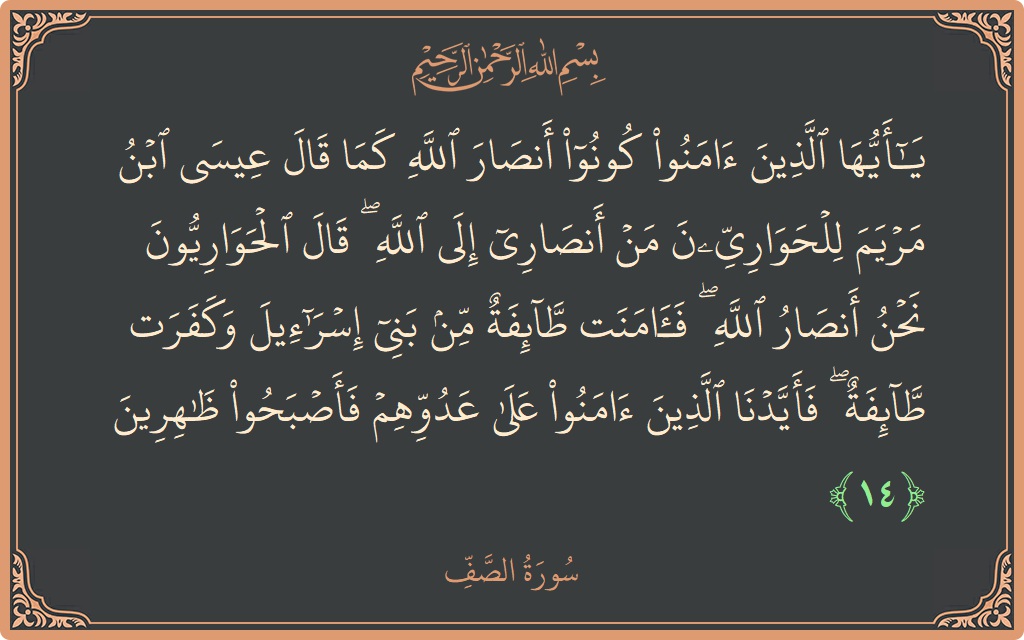 بِسْمِ اللهِ الرَّحْمٰنِ الرَّحِيْمِ
يَـٰٓأَيُّهَا ٱلَّذِينَ ءَامَنُوا۟ كُونُوٓا۟ أَنصَارَ ٱللَّهِ كَمَا قَالَ عِيسَى ٱبْنُ
مَرْيَمَ لِلْحَوَارِيِّـۧنَ مَنْ أَنصَارِىٓ إِلَى ٱللَّهِ ۖ قَالَ ٱلْحَوَارِيُّونَ
نَحْنُ أَنصَارُ ٱللَّهِ ۖ فَـَٔامَنَت طَّآئِفَةٌ مِّنۢ بَنِىٓ إِسْرَٰٓءِيلَ وَكَفَرَت
طَّآئِفَةٌ ۖ فَأَيَّدْنَا ٱلَّذِينَ ءَامَنُوا۟ عَلَىٰ عَدُوِّهِمْ فَأَصْبَحُوا۟ ظَـٰهِرِينَ
﴿١٤﴾
سُورَةُ الصَّفِّ